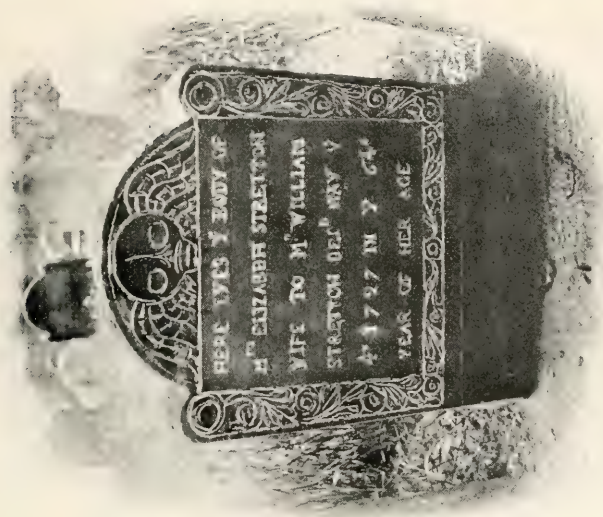 HERE LYES Y BODY OF
Mrs ELIZABETH STRETTON
WIFE TO Mr WILLIAM
STRETTON DECd MAY Y
4th 1727 IN Y
YEAR OF HER AGE